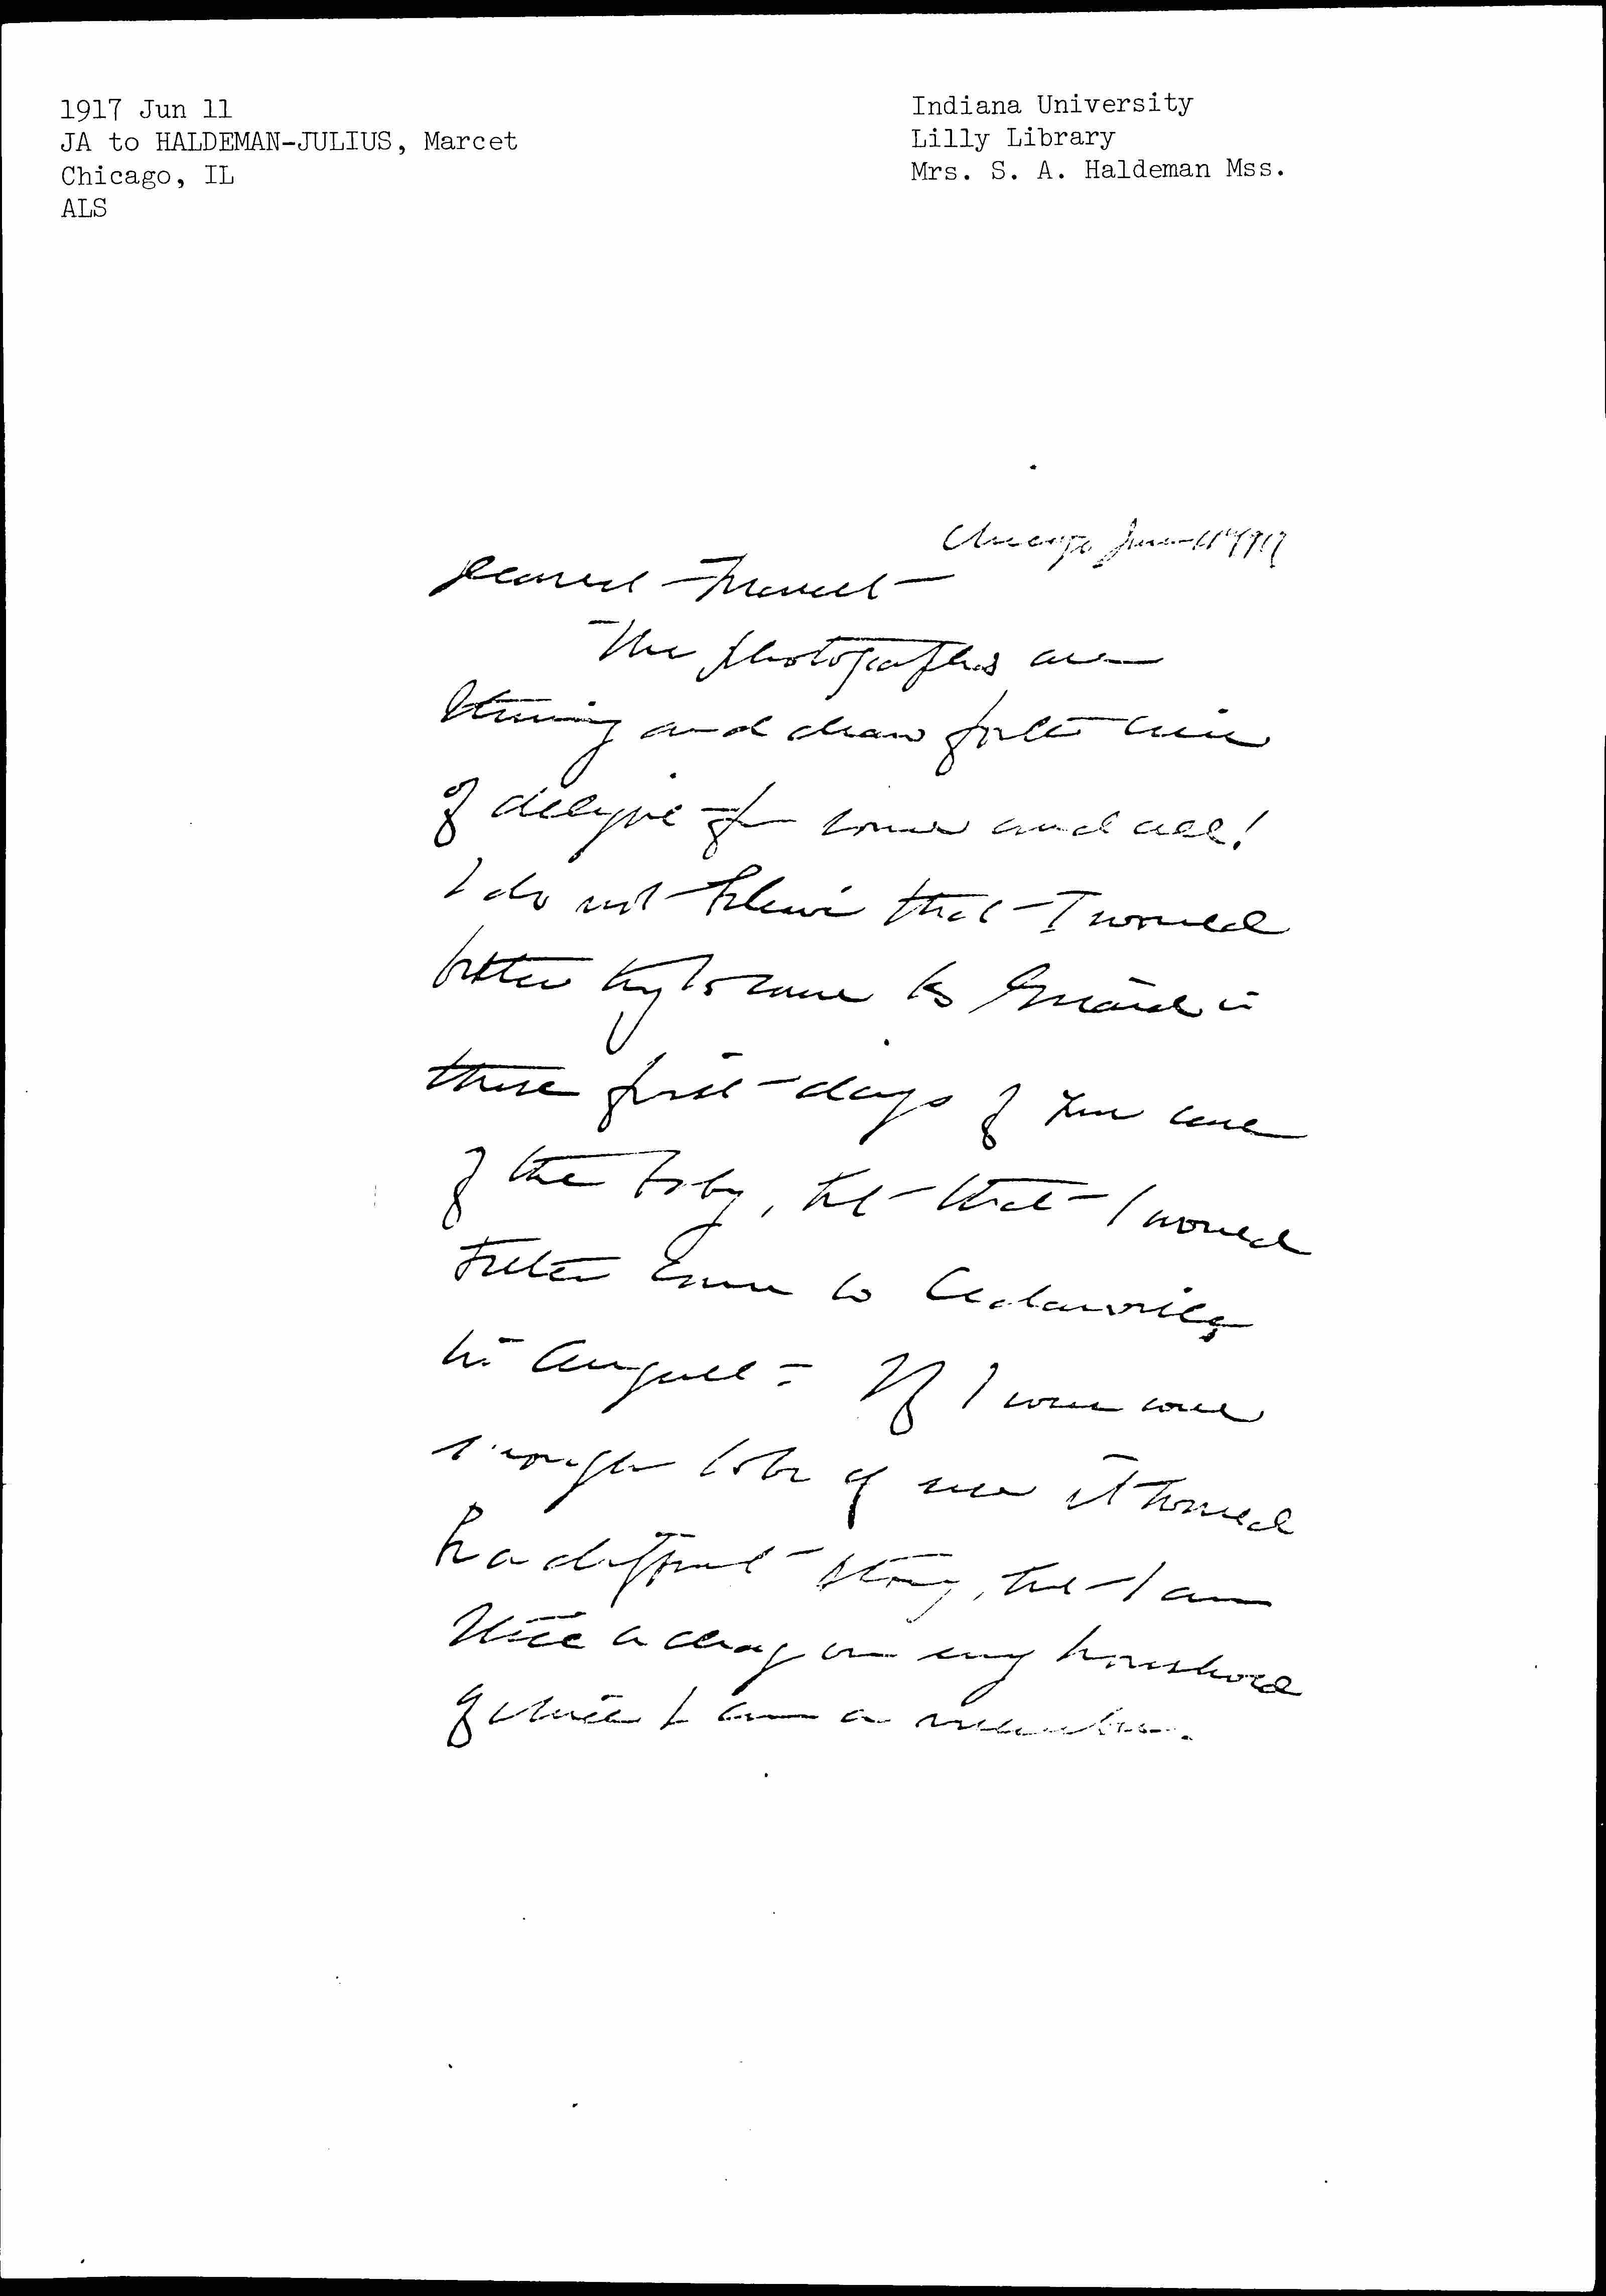 1917 Jun 11
JA to HALDEMAN-JULIUS, Marcet
Chicago, IL
ALS
Indiana University
Lilly Library
Mrs. S. A. Haldeman Mss.
Chicago June 11" 1917
Dearest Marcet —
The photographs are
stunning and draw forth cries
of delight from one and all!
I do not believe that I would
better try to come to Girard in
these first days of your care
of the baby, but that I would
better come to Cedarville
in August — If I were well
enough to be of use it would
be a different story, but I am
quite a drag on any household
of which I am a member.